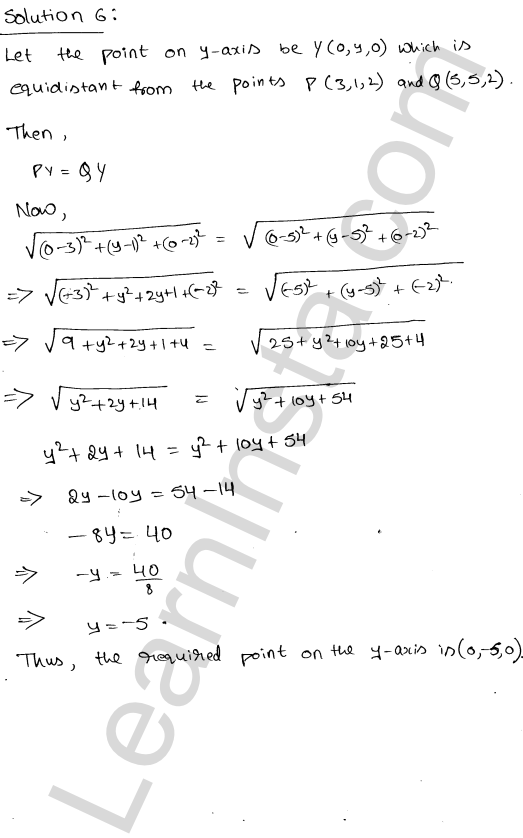 Solution 6:
Let the point on y-axis be Y(0,y,0) which is
equidistant from the points P(3,1,2) and Q(5,5,2).
Then,
PY = QY
Now,
√(0-3)²+(y-1)²+(0-2)² = √(0-5)²+(y-5)²+(0-2)²
=> √(-3)²+y²+2y+1+(-2)² = √(-5)²+(y-5)²+(-2)²
=> √9+y²+2y+1+4 = √25+y²+10y+25+4
=> √y²+2y+14 = √y²+10y+54
y²+2y+14 = y²+10y+54
=> 2y-10y = 54-14
-8y = 40
=> -y = 40/8
=> y = -5.
Thus, the required point on the y-axis is (0,-5,0).
LearnInsta.com